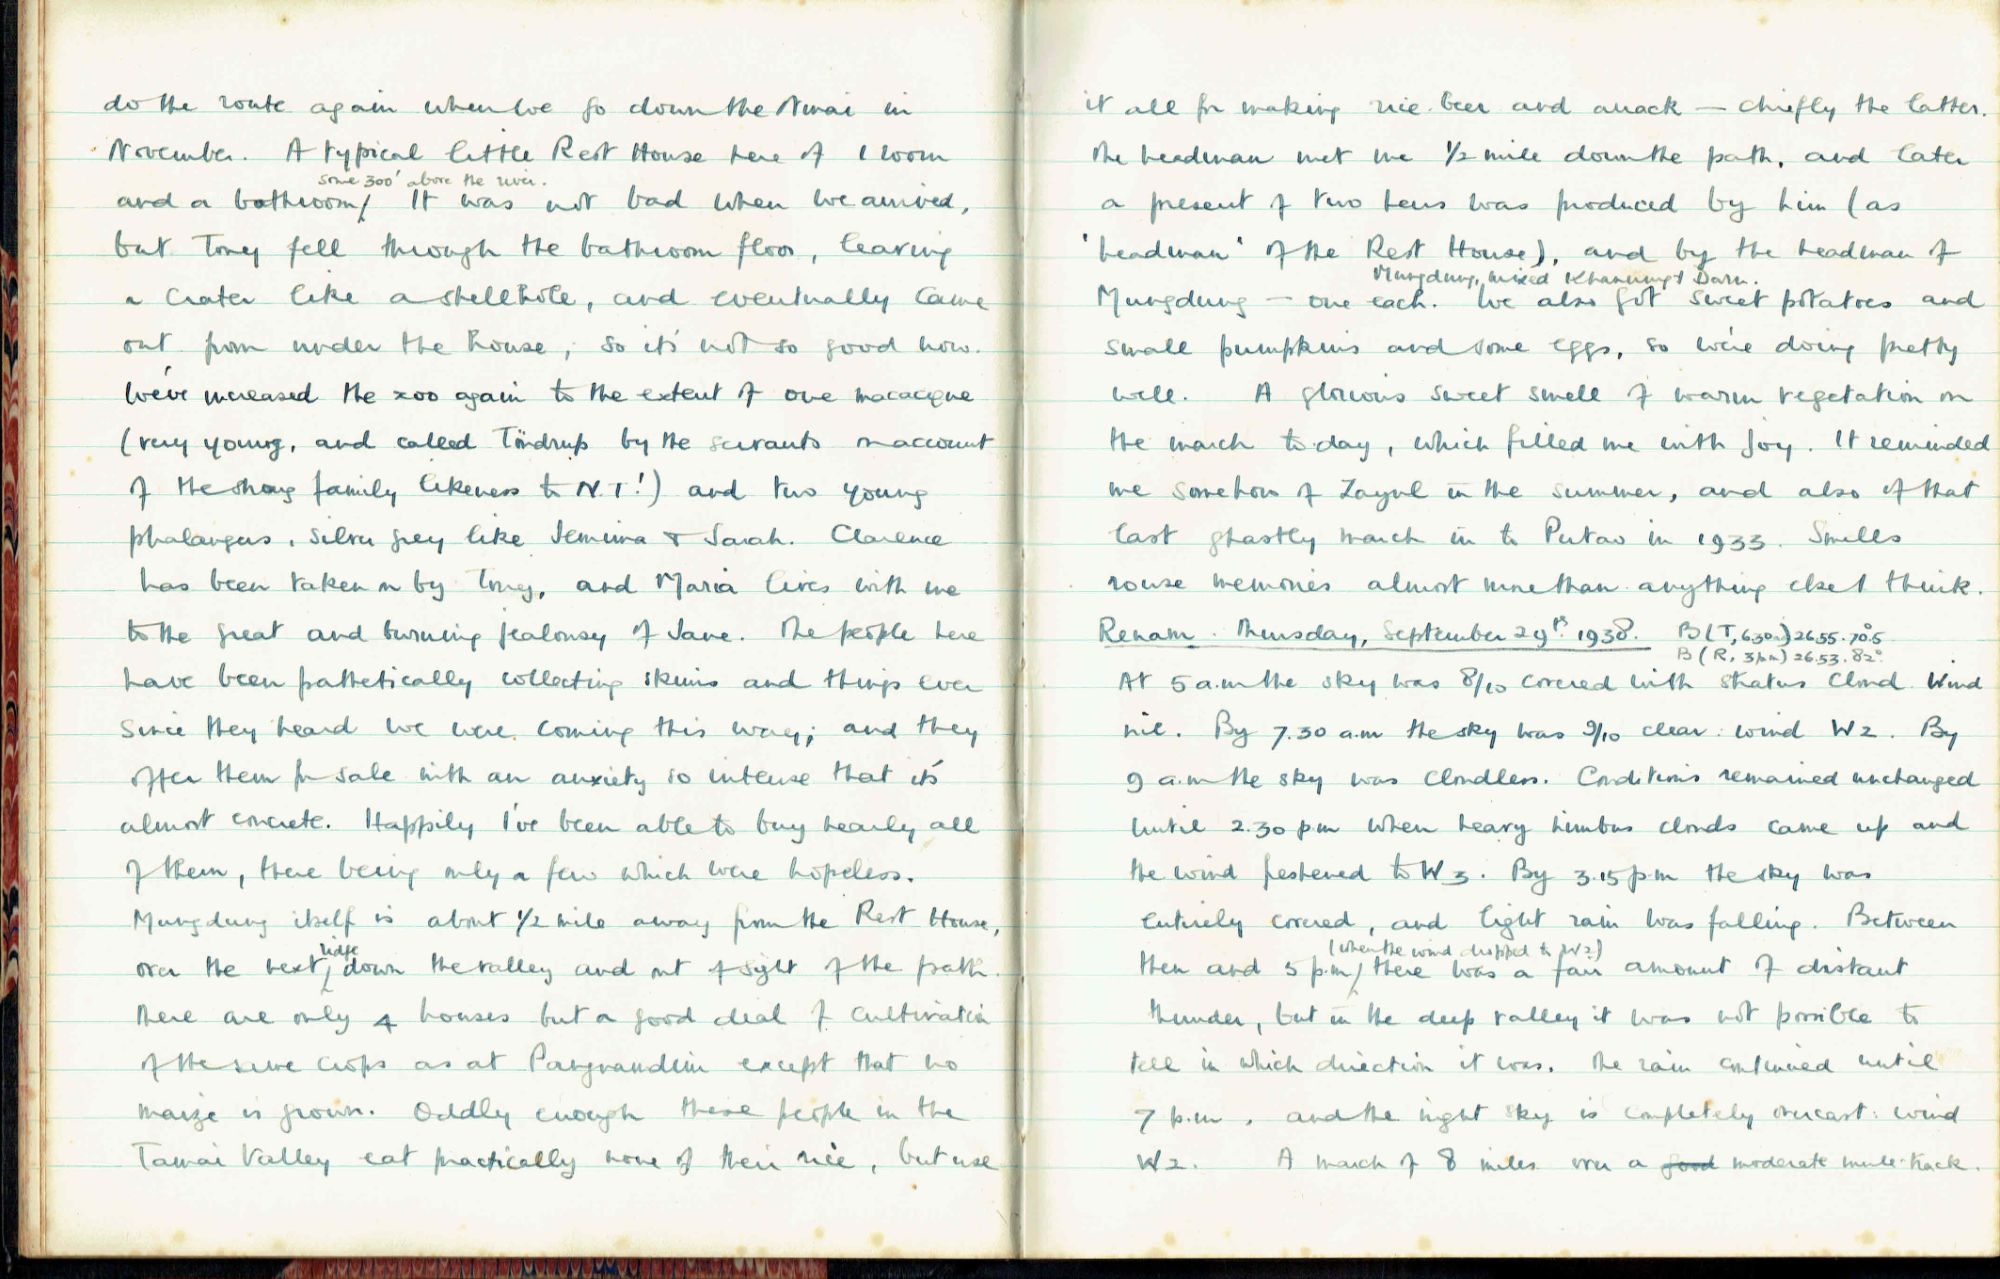 do the route again when we go down the Nmai in
November. A typical little Rest House here of 1 room
some 300' above the river.
and a bathroom/ It was not bad when we arrived,
but Tony fell through the bathroom floor, leaving
a crater like a shellhole, and eventually came
out from under the house, so it's not so good now.
We've increased the zoo again to the extent of one macacque
(very young, and called Töndrup by the servants on account
of the strong family likeness to N.T.!) and two young
phalangers, silver grey like Jemima & Sarah. Clarence
has been taken on by Tony, and Maria lives with me
to the great and burning jealousy of Jane. The people here
have been pathetically collecting skins and things ever
since they heard we were coming this way; and they
offer them for sale with an anxiety so intense that it's
almost concrete. Happily I've been able to buy nearly all
of them, there being only a few which were hopeless.
Mungdung itself is about 1/2 mile away from the Rest House,
ridge
over the next, down the valley and out of sight of the path.
There are only 4 houses but a good deal of cultivation
of the same crops as at Pangnamdim except that no
maize is grown. Oddly enough these people in the
Tamai Valley eat practically none of their rice, but use
it all for making rice beer and arrack — chiefly the latter.
The headman met me 1/2 mile down the path, and later
a present of two hens was produced by him (as
'headman' of the Rest House), and by the headman of
Mungdung, mixed Khanung & Daru.
Mungdung — one each. We also got sweet potatoes and
small pumpkins and some eggs, so we're doing pretty
well. A glorious sweet smell of warm vegetation on
the march to-day, which filled me with joy. It reminded
me somehow of Zayul in the summer, and also of that
last ghastly march in to Putao in 1933. Smells
rouse memories almost more than anything else I think.
Renam. Thursday, September 29th 1938. B(T, 6.30a) 26.55. 70°.5
B (R, 3pm) 26.53. 82°.
At 5 a.m the sky was 8/10 covered with stratus cloud. Wind
nil. By 7.30 a.m the sky was 9/10 clear: wind W2. By
9 a.m the sky was cloudless. Conditions remained unchanged
until 2.30 p.m when heavy nimbus clouds came up and
the wind freshened to W3. By 3.15 p.m the sky was
entirely covered, and light rain was falling. Between
(when the wind dropped to W2)
then and 5 p.m/ there was a fair amount of distant
thunder, but in the deep valley it was not possible to
tell in which direction it was. The rain continued until
7 p.m, and the night sky is completely overcast: wind
W2. A march of 8 miles over a good moderate mule-track.